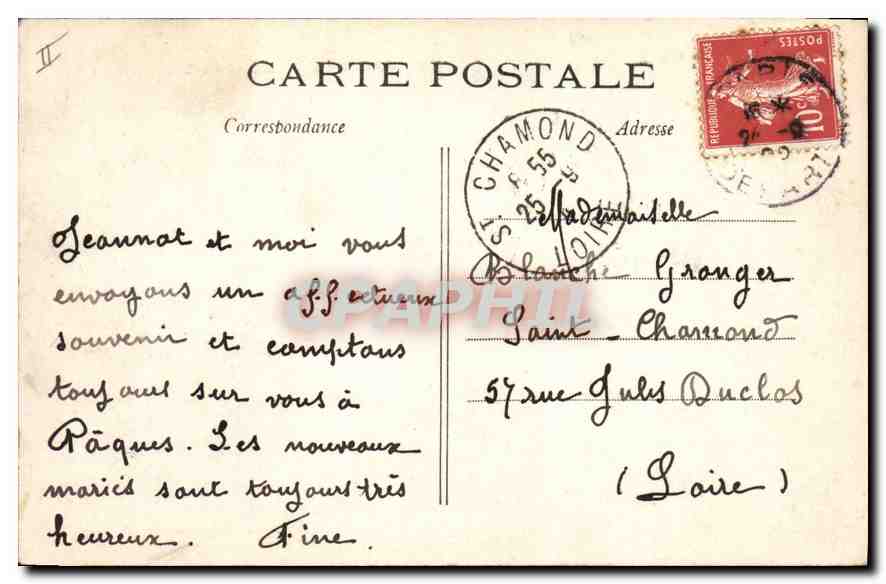 II
CARTE POSTALE
Correspondance
Adresse
POSTES
REPUBLIQUE FRANÇAISE
10 c
ST CHAMOND
55
25
LOIRE
DEPART
CPAPHIL
Jeannot et moi vous
envoyons un affectueux
souvenir et comptons
toujours sur vous à
Pâques. Les nouveaux
mariés sont toujours très
heureux. Fine.
Mademoiselle
Blanche Granger
Saint-Chamond
57 rue Jules Duclos
(Loire)